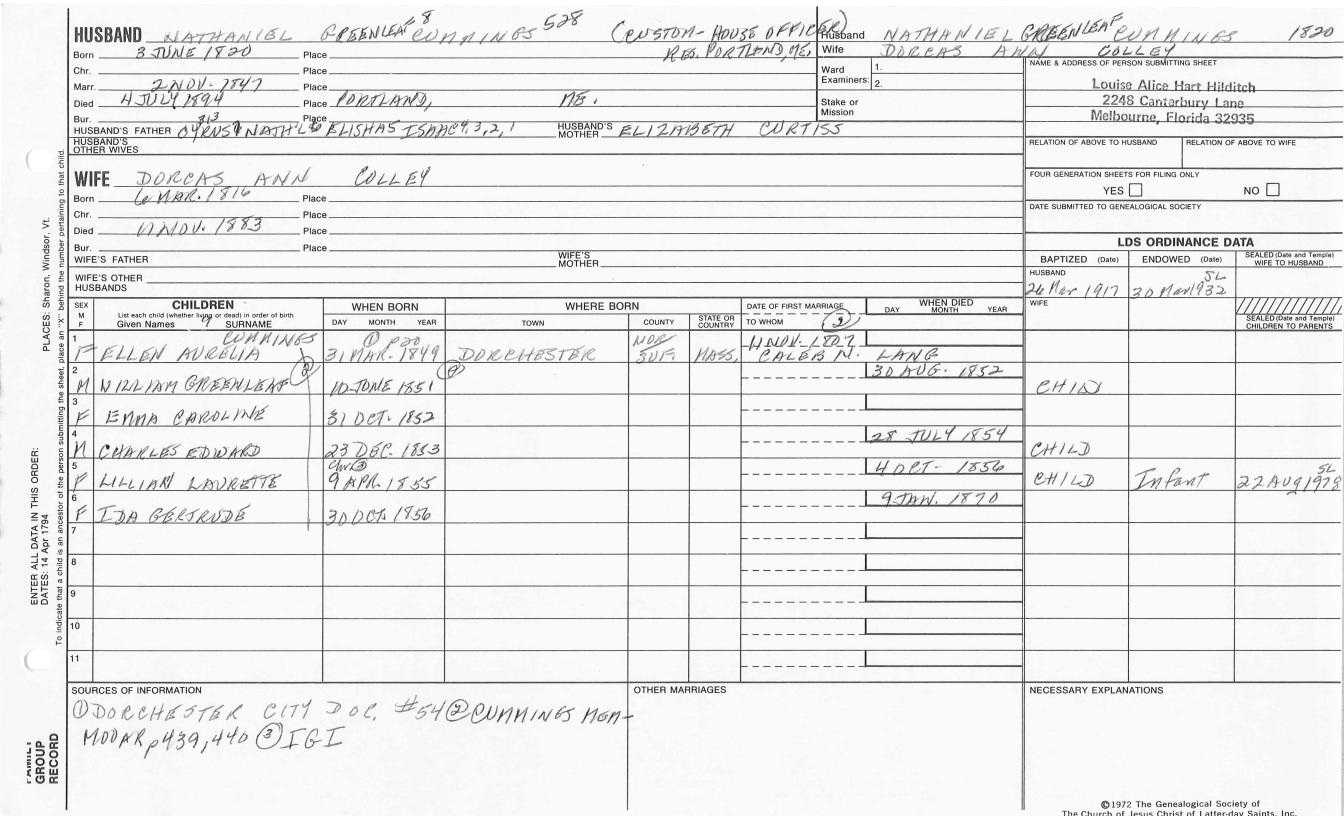 HUSBAND NATHANIEL GREENLEAF 8 CUMMINGS 528 (CUSTOM-HOUSE OFFICER)
Born 3 JUNE 1820 Place RES. PORTLAND, ME.
Chr. Place
Marr. 2 NOV. 1847 Place
Died 4 JULY 1894 Place PORTLAND, ME.
Bur. Place
HUSBAND'S FATHER NATH'L 6 ELISHA 5 ISAAC 4, 3, 2, 1 HUSBAND'S MOTHER ELIZABETH CURTISS
HUSBAND'S OTHER WIVES
WIFE DORCAS ANN COLLEY
Born 6 MAR. 1816 Place
Chr. Place
Died NOV. 1883 Place
Bur. Place
WIFE'S FATHER WIFE'S MOTHER
WIFE'S OTHER HUSBANDS
Husband NATHANIEL GREENLEAF CUMMINGS 1820
Wife DORCAS ANN COLLEY
Ward Examiners: 1.
2.
Stake or Mission
NAME & ADDRESS OF PERSON SUBMITTING SHEET
Louise Alice Hart Hilditch
2248 Canterbury Lane
Melbourne, Florida 32935
RELATION OF ABOVE TO HUSBAND RELATION OF ABOVE TO WIFE
FOUR GENERATION SHEETS FOR FILING ONLY
YES NO
DATE SUBMITTED TO GENEALOGICAL SOCIETY
LDS ORDINANCE DATA
BAPTIZED (Date) ENDOWED (Date) SEALED (Date and Temple) WIFE TO HUSBAND
HUSBAND SL
26 Mar 1917 30 Mar 1932
WIFE
SEALED (Date and Temple) CHILDREN TO PARENTS
SEX M F CHILDREN WHEN BORN WHERE BORN DATE OF FIRST MARRIAGE WHEN DIED
List each child (whether living or dead) in order of birth
Given Names 9 SURNAME DAY MONTH YEAR TOWN COUNTY STATE OR COUNTRY TO WHOM 2 DAY MONTH YEAR
1 CUMMINGS 1 p20 NOR
F ELLEN AURELIA 31 MAR. 1849 DORCHESTER SUF. MASS. CALEB N. LANG
2 2 2 30 AUG. 1852
M WILLIAM GREENLEAF 10 JUNE 1851 CHILD
3
F EMMA CAROLINE 31 OCT. 1852
4 28 JULY 1854
M CHARLES EDWARD 23 DEC. 1853 CHILD
5 chr 3 4 OCT- 1856 SL
F LILLIAN LAURETTE 9 APR. 1855 CHILD Infant 22 AUG 1978
6 9 JAN. 1870
F IDA GERTRUDE 30 OCT. 1856
7
8
9
10
11
SOURCES OF INFORMATION
① DORCHESTER CITY DOC. #54 ② CUMMINGS MEM-
p439, 440 ③ IGI
OTHER MARRIAGES
NECESSARY EXPLANATIONS
©1972 The Genealogical Society of
The Church of Jesus Christ of Latter-day Saints, Inc.
ENTER ALL DATA IN THIS ORDER:
DATES: 14 Apr 1794
PLACES: Sharon, Windsor, Vt.
To indicate that a child is an ancestor of the person submitting the sheet, place an "X" behind the number pertaining to that child.
FAMILY GROUP RECORD